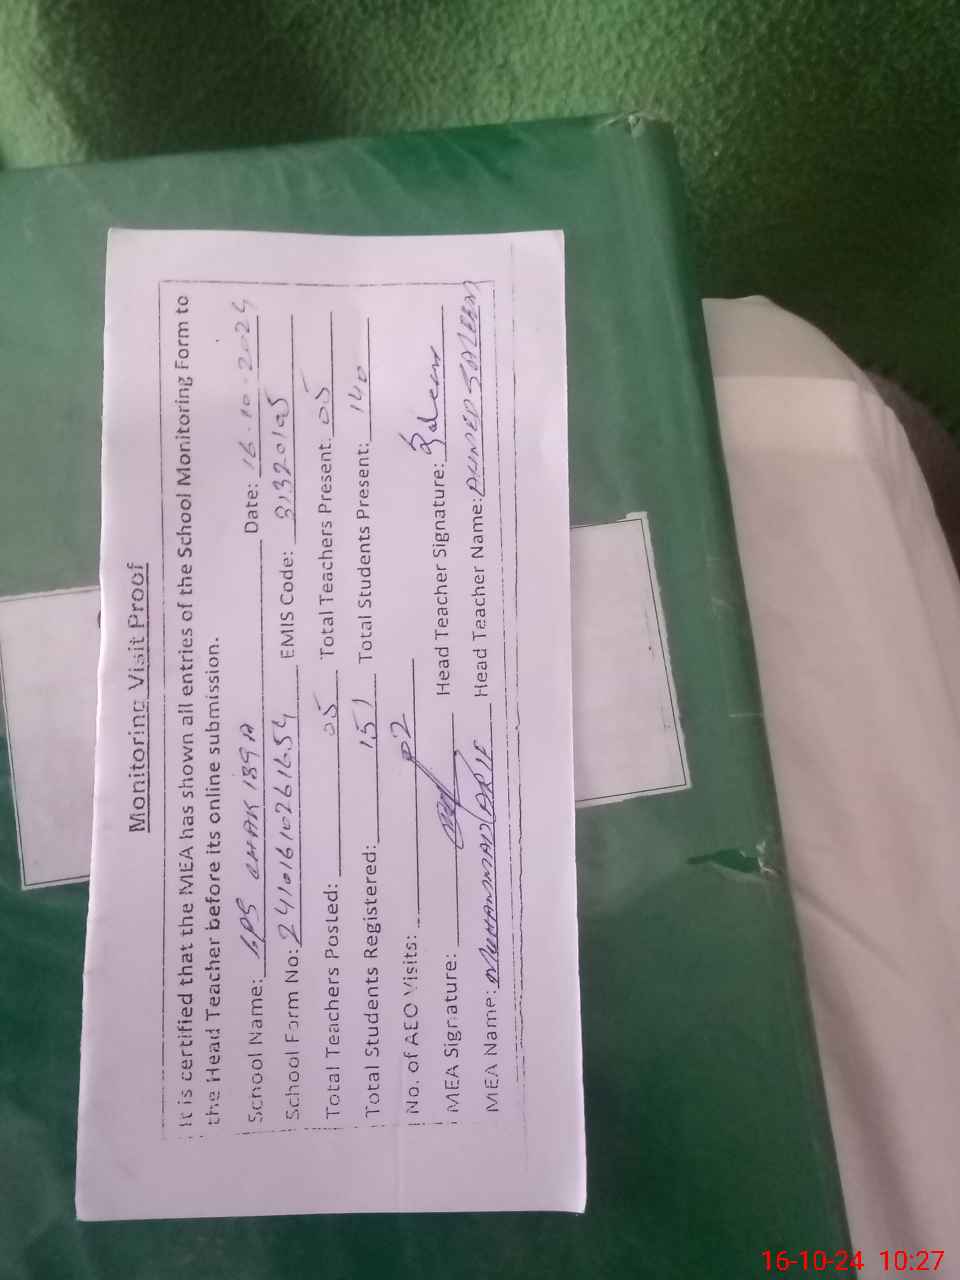 Monitoring Visit Proof
It is certified that the MEA has shown all entries of the School Monitoring Form to
the Head Teacher before its online submission.
School Name: GPS CHAK 189A Date: 16-10-2024
School Form No: EMIS Code: 31320105
Total Teachers Posted: 05 Total Teachers Present: 05
Total Students Registered: 151 Total Students Present: 140
No. of AEO Visits: 02
MEA Signature: Head Teacher Signature: Saleem
MEA Name: MUHAMMAD ARIF Head Teacher Name: AHMED SALEEM
16-10-24 10:27